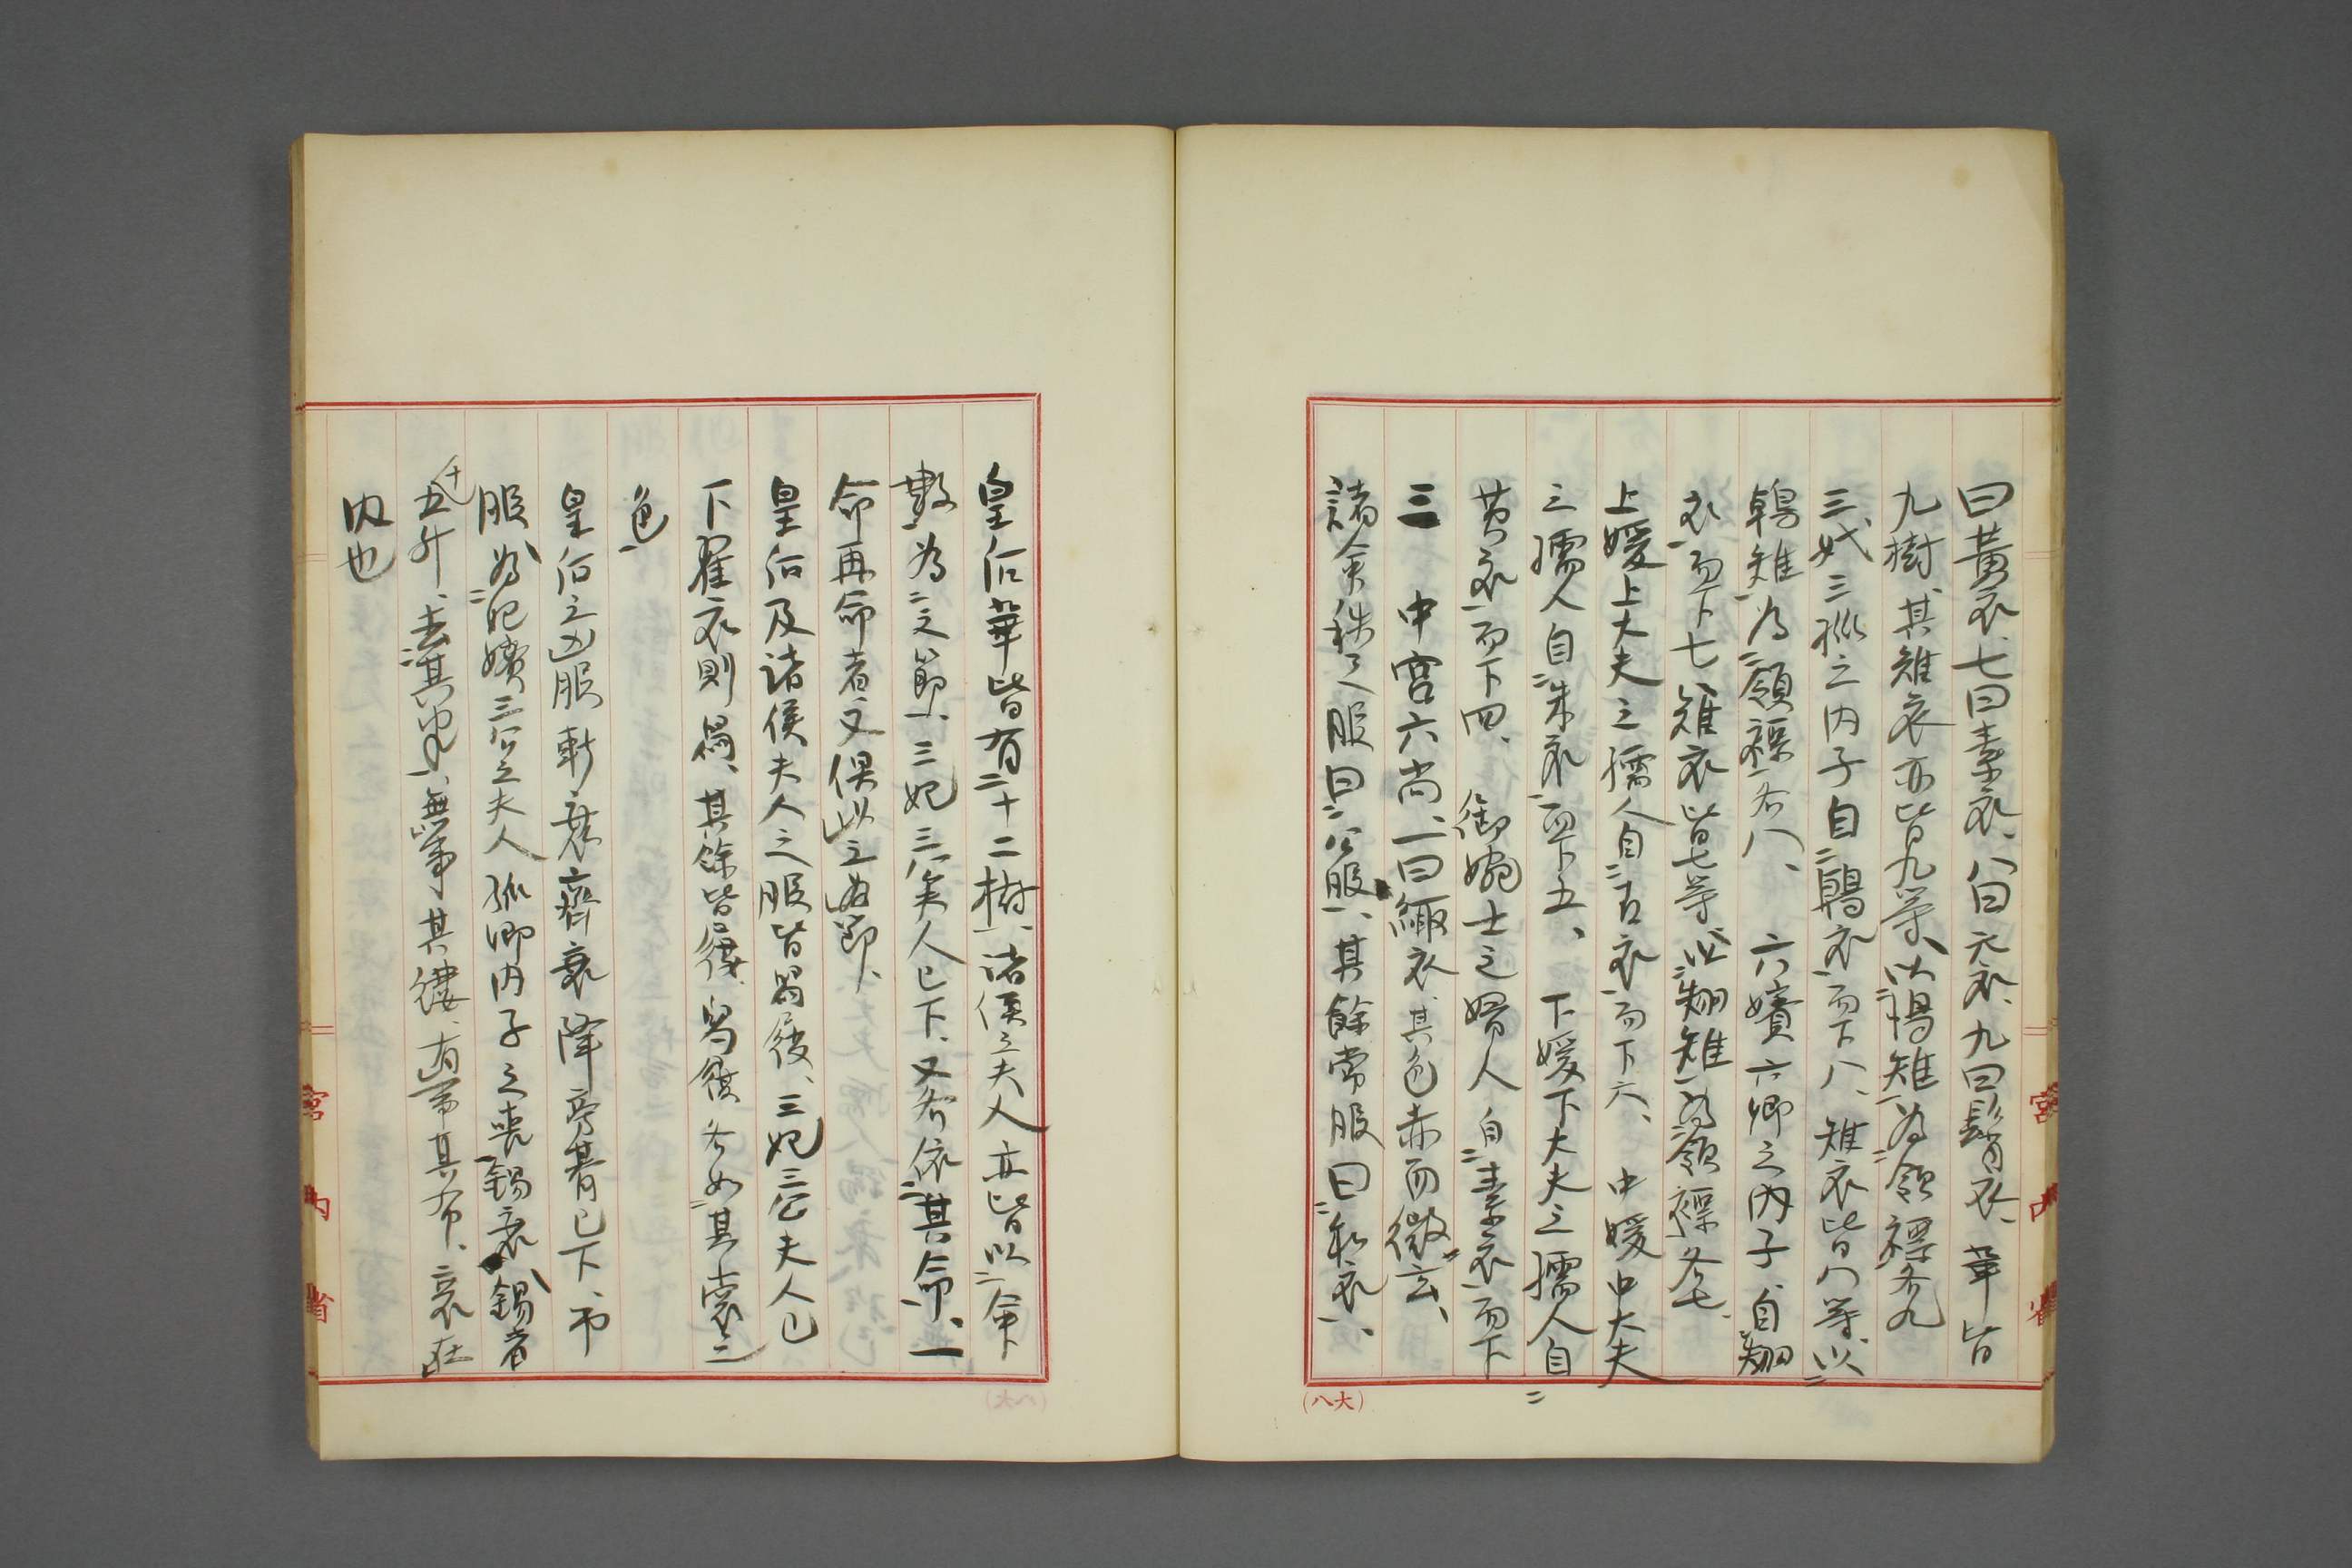 曰黄衣、七曰素衣、八曰玄衣、九曰髾衣、華皆
九樹、其雉衣亦皆九等、以鳪雉為領褾各九
三妣三孤之内子自鷷衣而下八、雉衣皆八等、以
鷷雉為領褾各八、六嬪六卿之内子、自翽
衣而下七、雉衣皆七等、以翽雉為領褾各七、
上媛上大夫之孺人自青衣而下六、中媛中大夫
之孺人自朱衣而下五、下媛下大夫之孺人自
黄衣而下四、御婉士之婦人自素衣而下
三 中宮六尚、一曰緅衣、其色赤而微玄、
諸命秩之服曰公服、其餘常服曰私衣、
皇后華皆有十二樹、諸侯之夫人亦皆以命
數為之節、三妃三公夫人已下、又各依其命、一
命再命者又俱以三為節、
皇后及諸侯夫人之服皆舄履、三妃三公夫人已
下翟衣則舄、其餘皆履、舄履各如其裳之
色
皇后之凶服斬衰齊衰降旁朞已下、弔
服、為妃嬪三公之夫人孤卿内子之喪錫衰、錫者
十五升、去其半、無事其縷、有事其布、衰在
内也
宮内省
宮内省
(大八)